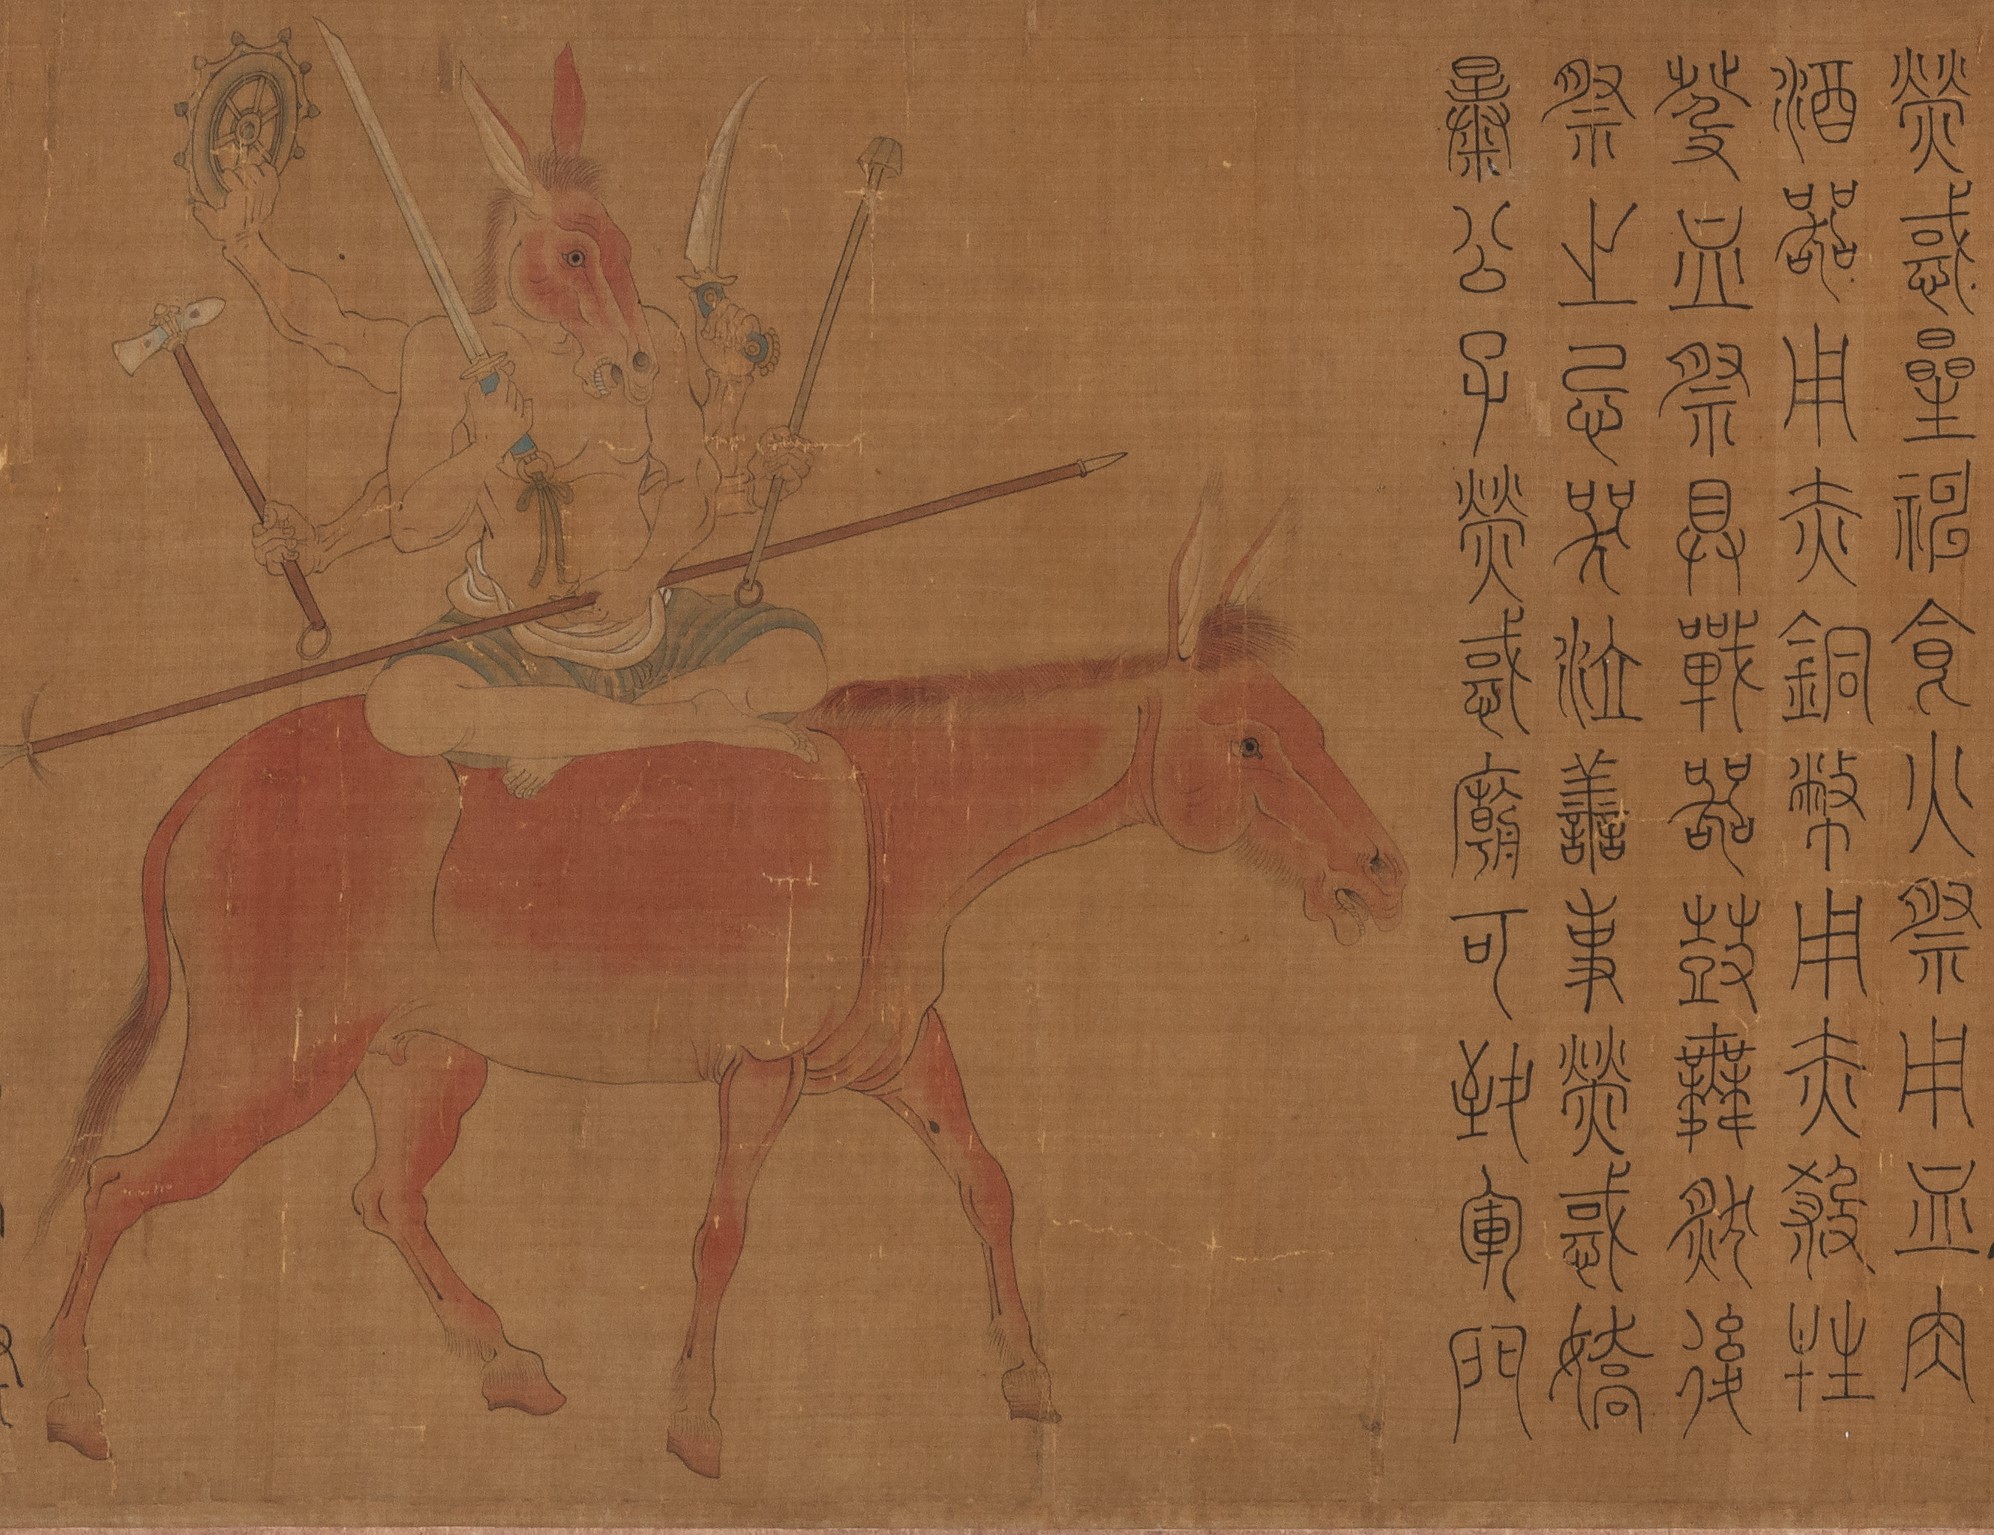 熒惑星神食火祭用血肉
酒器用赤銅幣用赤殺牲
發血祭具戰器鼓舞然後
祭之忌哭泣善事熒惑嬌
暴公子熒惑廟可致軍門